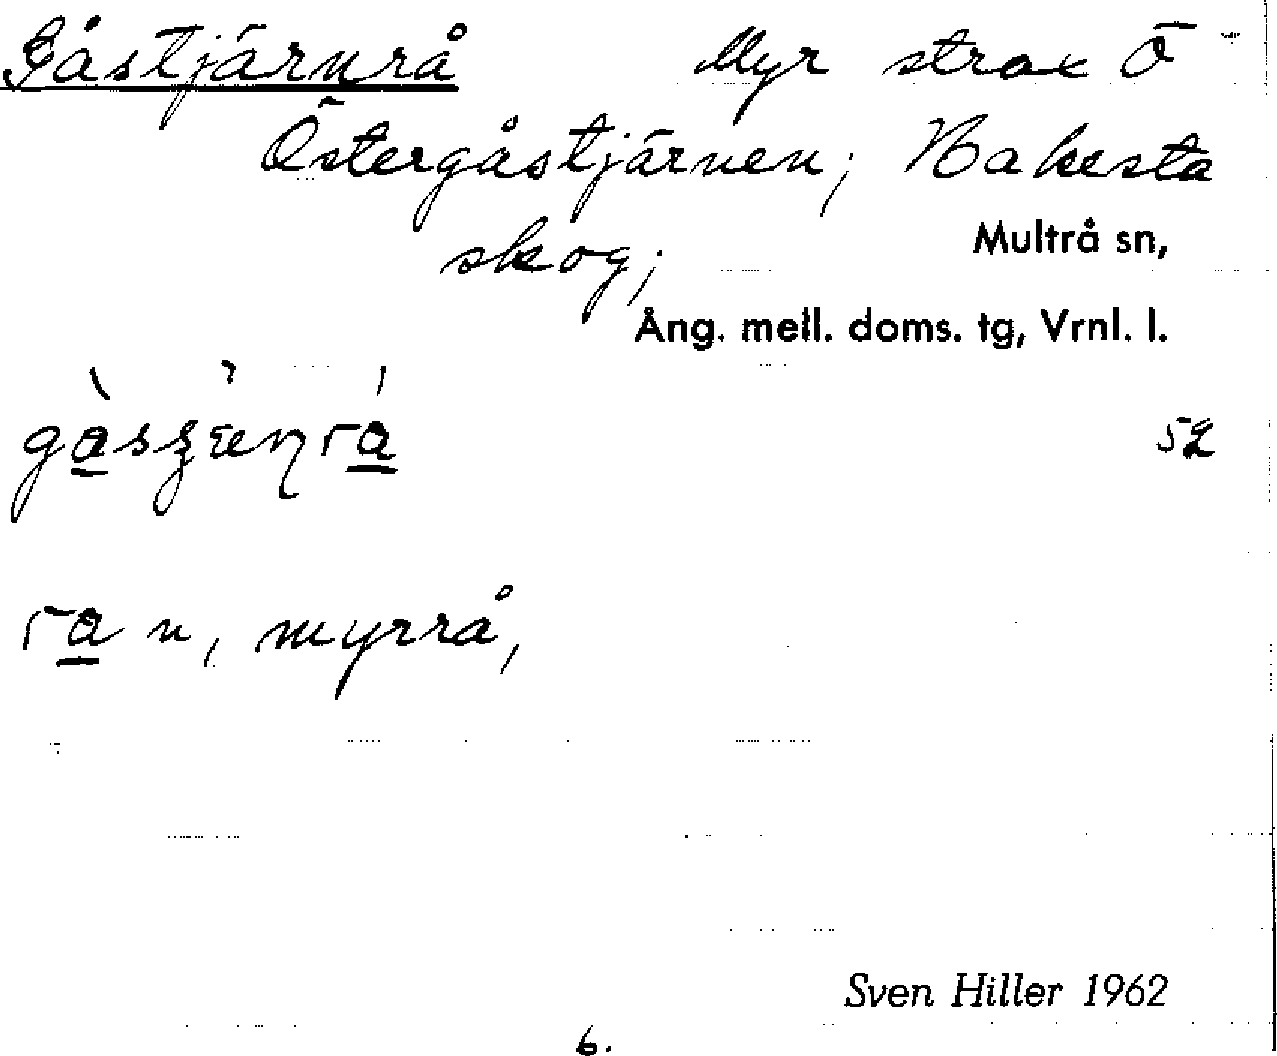 Gåstjärnrå Myr strax Ö
Östergåstjärnen; Nakesta
skog;
Multrå sn,
Ång. mell. doms. tg, Vrnl. l.
52
ra n, myrrå,
Sven Hiller 1962
6.